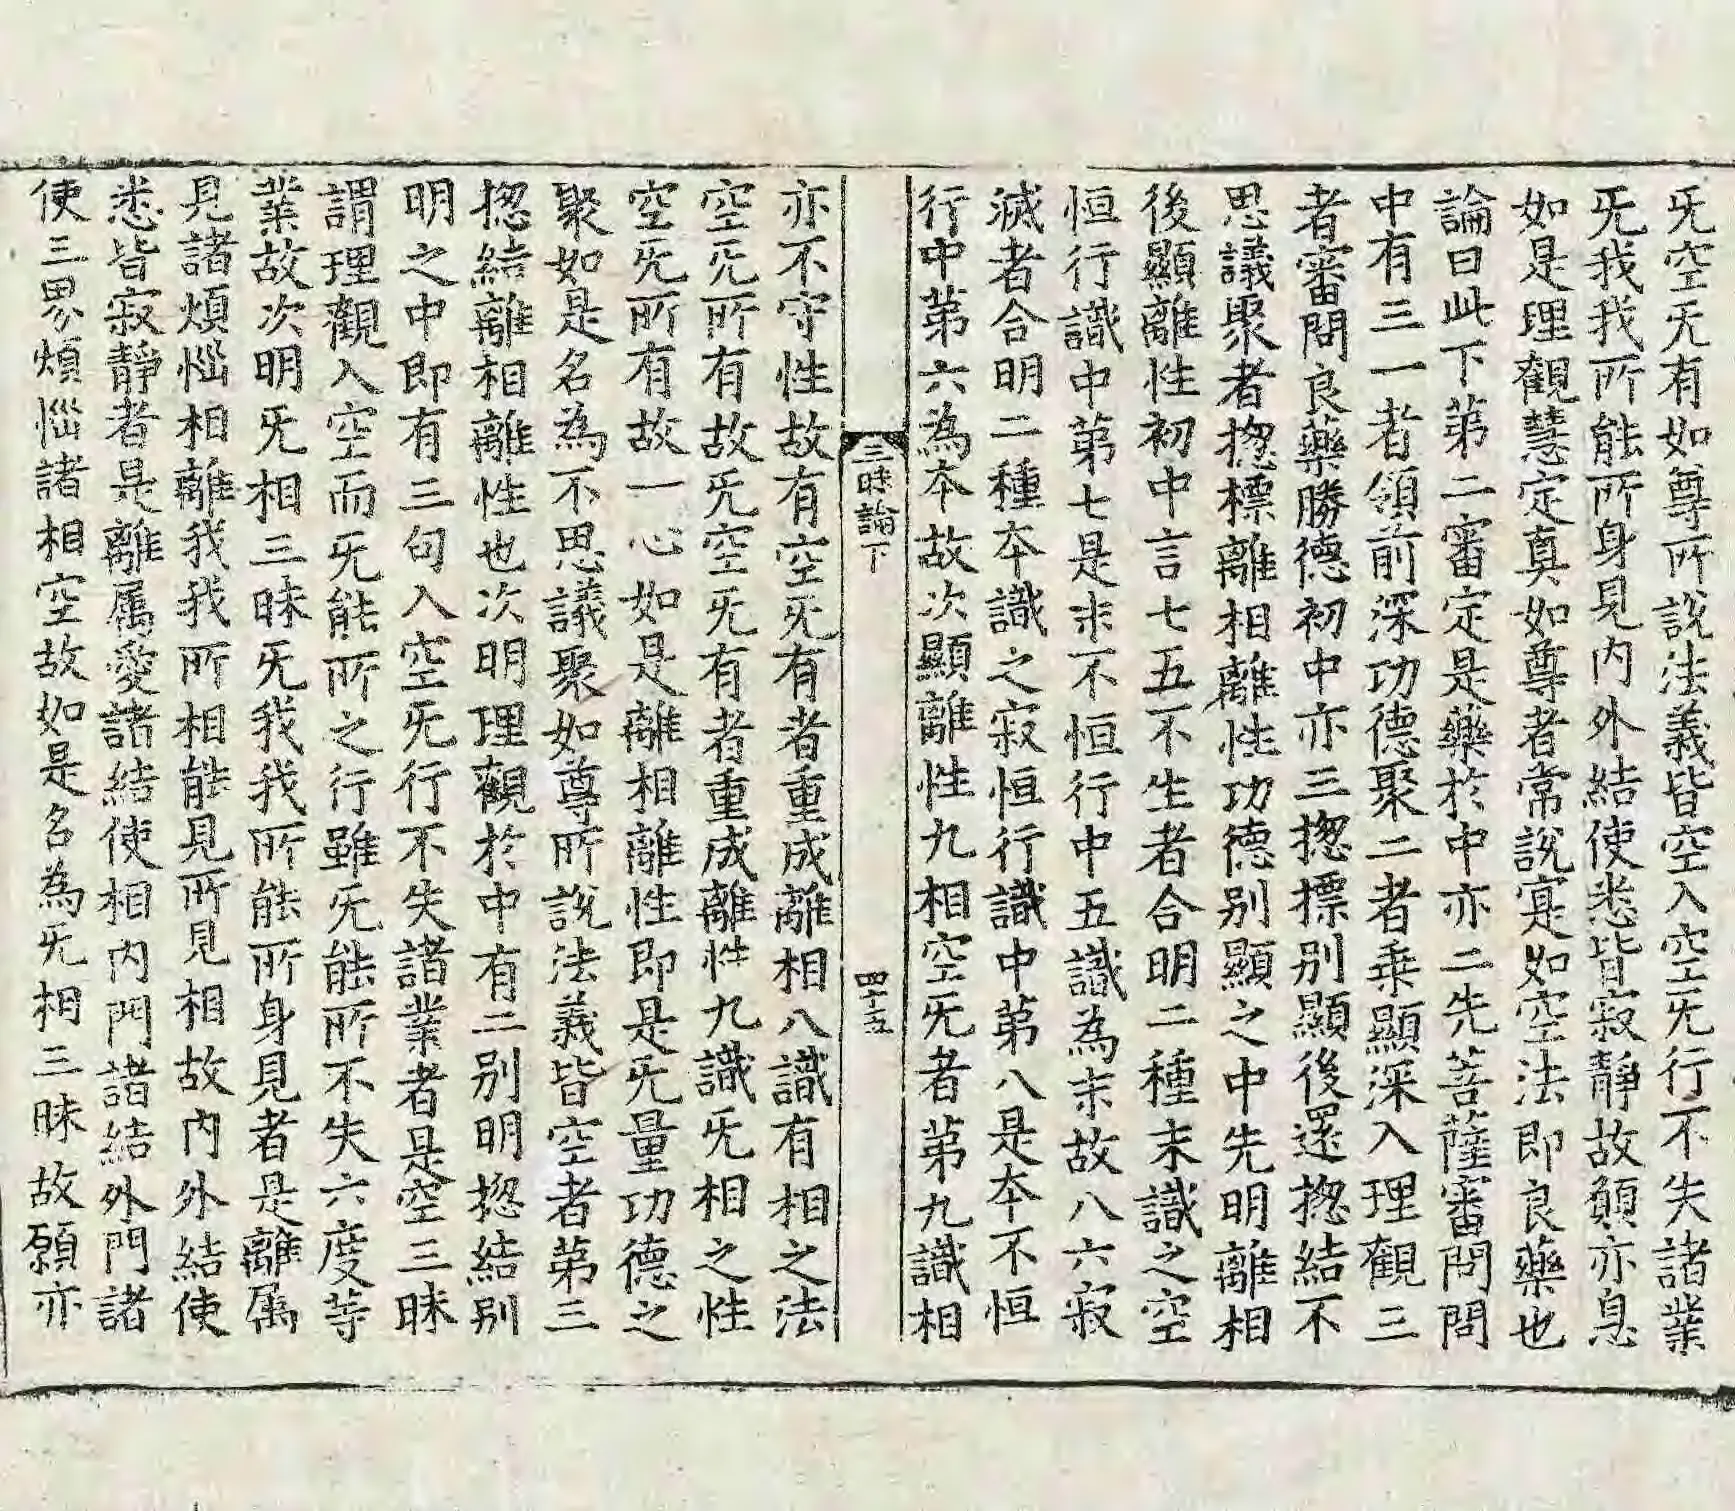 旡空旡有如尊所說法義皆空入空旡行不失諸業
旡我我所能所身見內外結使悉皆寂靜故願亦息
如是理觀慧定真如尊者常說寔如空法即良藥也
論曰此下第二審定是藥於中亦二先菩薩審問問
中有三一者領前深功德聚二者乗顯深入理觀三
者審問良藥勝德初中亦三揔摽別顯後還揔結不
思議聚者揔標離相離性功德別顯之中先明離相
後顯離性初中言七五不生者合明二種末識之空
恒行識中第七是末不恒行中五識為末故八六寂
滅者合明二種本識之寂恒行識中第八是本不恒
行中第六為本故次顯離性九相空旡者第九識相
三昧論下
四十五
亦不守性故有空旡有者重成離相八識有相之法
空旡所有故旡空旡有者重成離性九識旡相之性
空旡所有故一心如是離相離性即是旡量功德之
聚如是名為不思議聚如尊所說法義皆空者第三
揔結離相離性也次明理觀於中有二別明揔結別
明之中即有三句入空旡行不失諸業者是空三昧
謂理觀入空而旡能所之行雖旡能所不失六度等
業故次明旡相三昧旡我我所能所身見者是離属
見諸煩惱相離我我所相能見所見相故內外結使
悉皆寂靜者是離属愛諸結使相內門諸結外門諸
使三界煩惱諸相空故如是名為旡相三昧故願亦